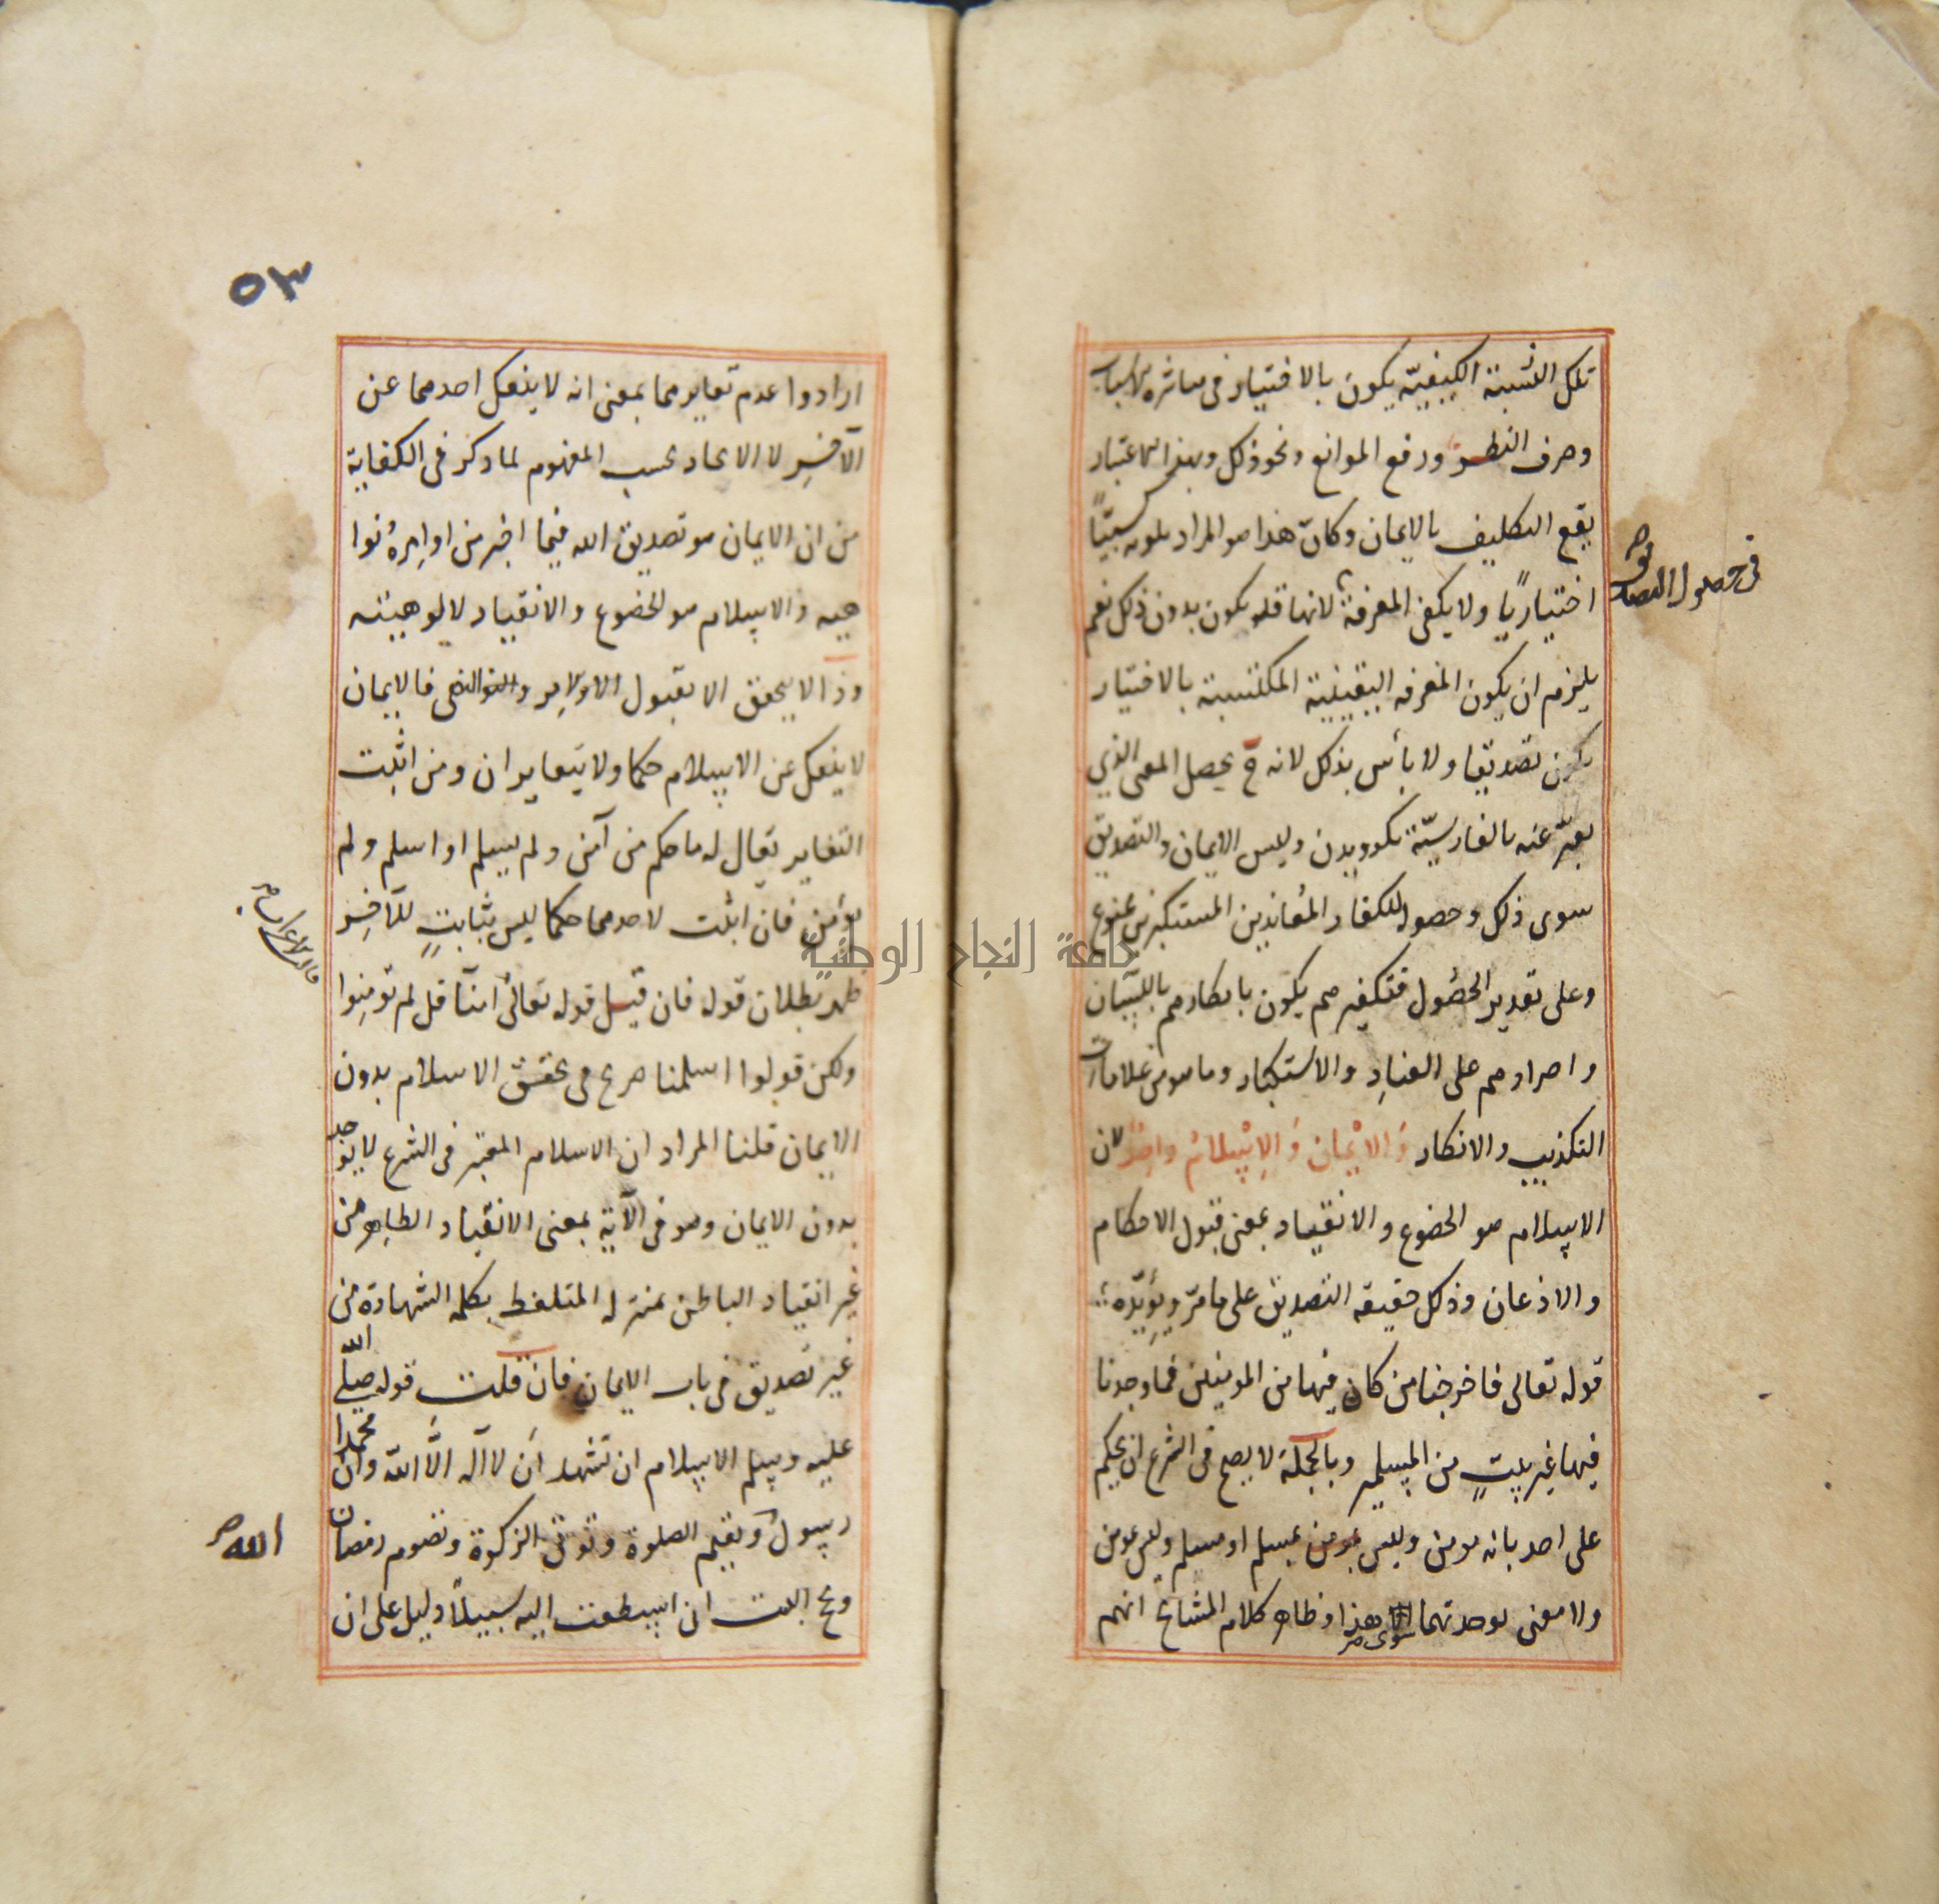 تلك النسبة الكيفيّة يكون بالاختيار فى مباشرة الاسباب
وصرف النظر ورفع الموانع ونحو ذلك وبهذا الاعتبار
يقع التكليف بالايمان وكانّ هذا هو المراد بكونه كسبيّا
اختياريّا ولا يكفى المعرفة لانها قد يكون بدون ذلك نعم
فى حصول التصديق صح
يلزم ان يكون المعرفه اليقينية المكتسبة بالاختيار
يكون تصديقا ولا بأس بذلك لانه ح يحصل المعنى الذي
يعبّر عنه بالفارسيّة بكرويدن وليس الايمان والتصديق
سوى ذلك وحصوله للكفار المُعاندين المستكبرين ممنوع
وعلى تقدير الحصُول فتكفيرهم يكون بانكارهم باللسَان
واصرارهم على العنادِ والاستكبار وما هو من علامات
التكذيب والانكار وَالايْمان وَالاِسْلامُ واحِدٌ لان
الاسلام هو الخضوع والانقياد بمعنى قبول الاحكام
والاذعان وذلك حقيقه التصديق على ما مرّ ويؤيّده
قوله تعالى فاخرجنا من كان فيها من المومنين فما وجدنا
فيها غير بيتٍ من المسلمين وبالجملة لا يصح فى الشرع ان يحكم
على احد بانه مومن وليس بمسلم او مسلم وليس بمومن
ولا معنى لوحدتهما سوى هذا وظاهر كلام المشايخ انهم
٥٣
ارادوا عدم تغايرهما بمعنى انه لا ينفكل احدهما عن
الآخرِ لا الاتحاد بحسب المفهوم لما ذكر فى الكفاية
من ان الايمان هو تصديق الله فيما اخبر من اوامِرهُ نوا
هيه والاسلام هو الخضوع والانقياد لالوهيته
وذا لا يتحقق الا بقبول الاوامِر والنواهى فالايمان
لا ينفكل عن الاسلام حكما ولا يتغايران ومن اثبت
التغاير يقال له ما حكم من آمن ولم يسلم او اسلم ولم
يؤمن فان اثبت لاحدهما حكما ليس بثابتٍ للآخِر
ظهر بطلان قوله فان قيل قوله تعالىٰ امنّا قل لم تؤمِنوا
قالت الاعراب صح
ولكن قولوا اسلمنا صريح فى تحقق الاسلام بدون
الايمان قلنا المراد ان الاسلام المعتبر فى الشرع لا يوجد
بدون الايمان وهو فى الآية بمعنى الانقياد الظاهر من
غير انقياد الباطن بمنزله المتلفظ بكلمه الشهادة من
غير تصديق فى باب الايمان فان قلت قوله صلّى الله
عليه وسلم الاسلام ان تشهد اَن لا آله الّا الله وانّ محمدا
رسولُ وتقيم الصلوة وتوتى الزكوة وتصوم رمضان
الله صح
وتحج البيت ان استطعت اليه سبيلاً دليل على ان
جامعة النجاح الوطنية